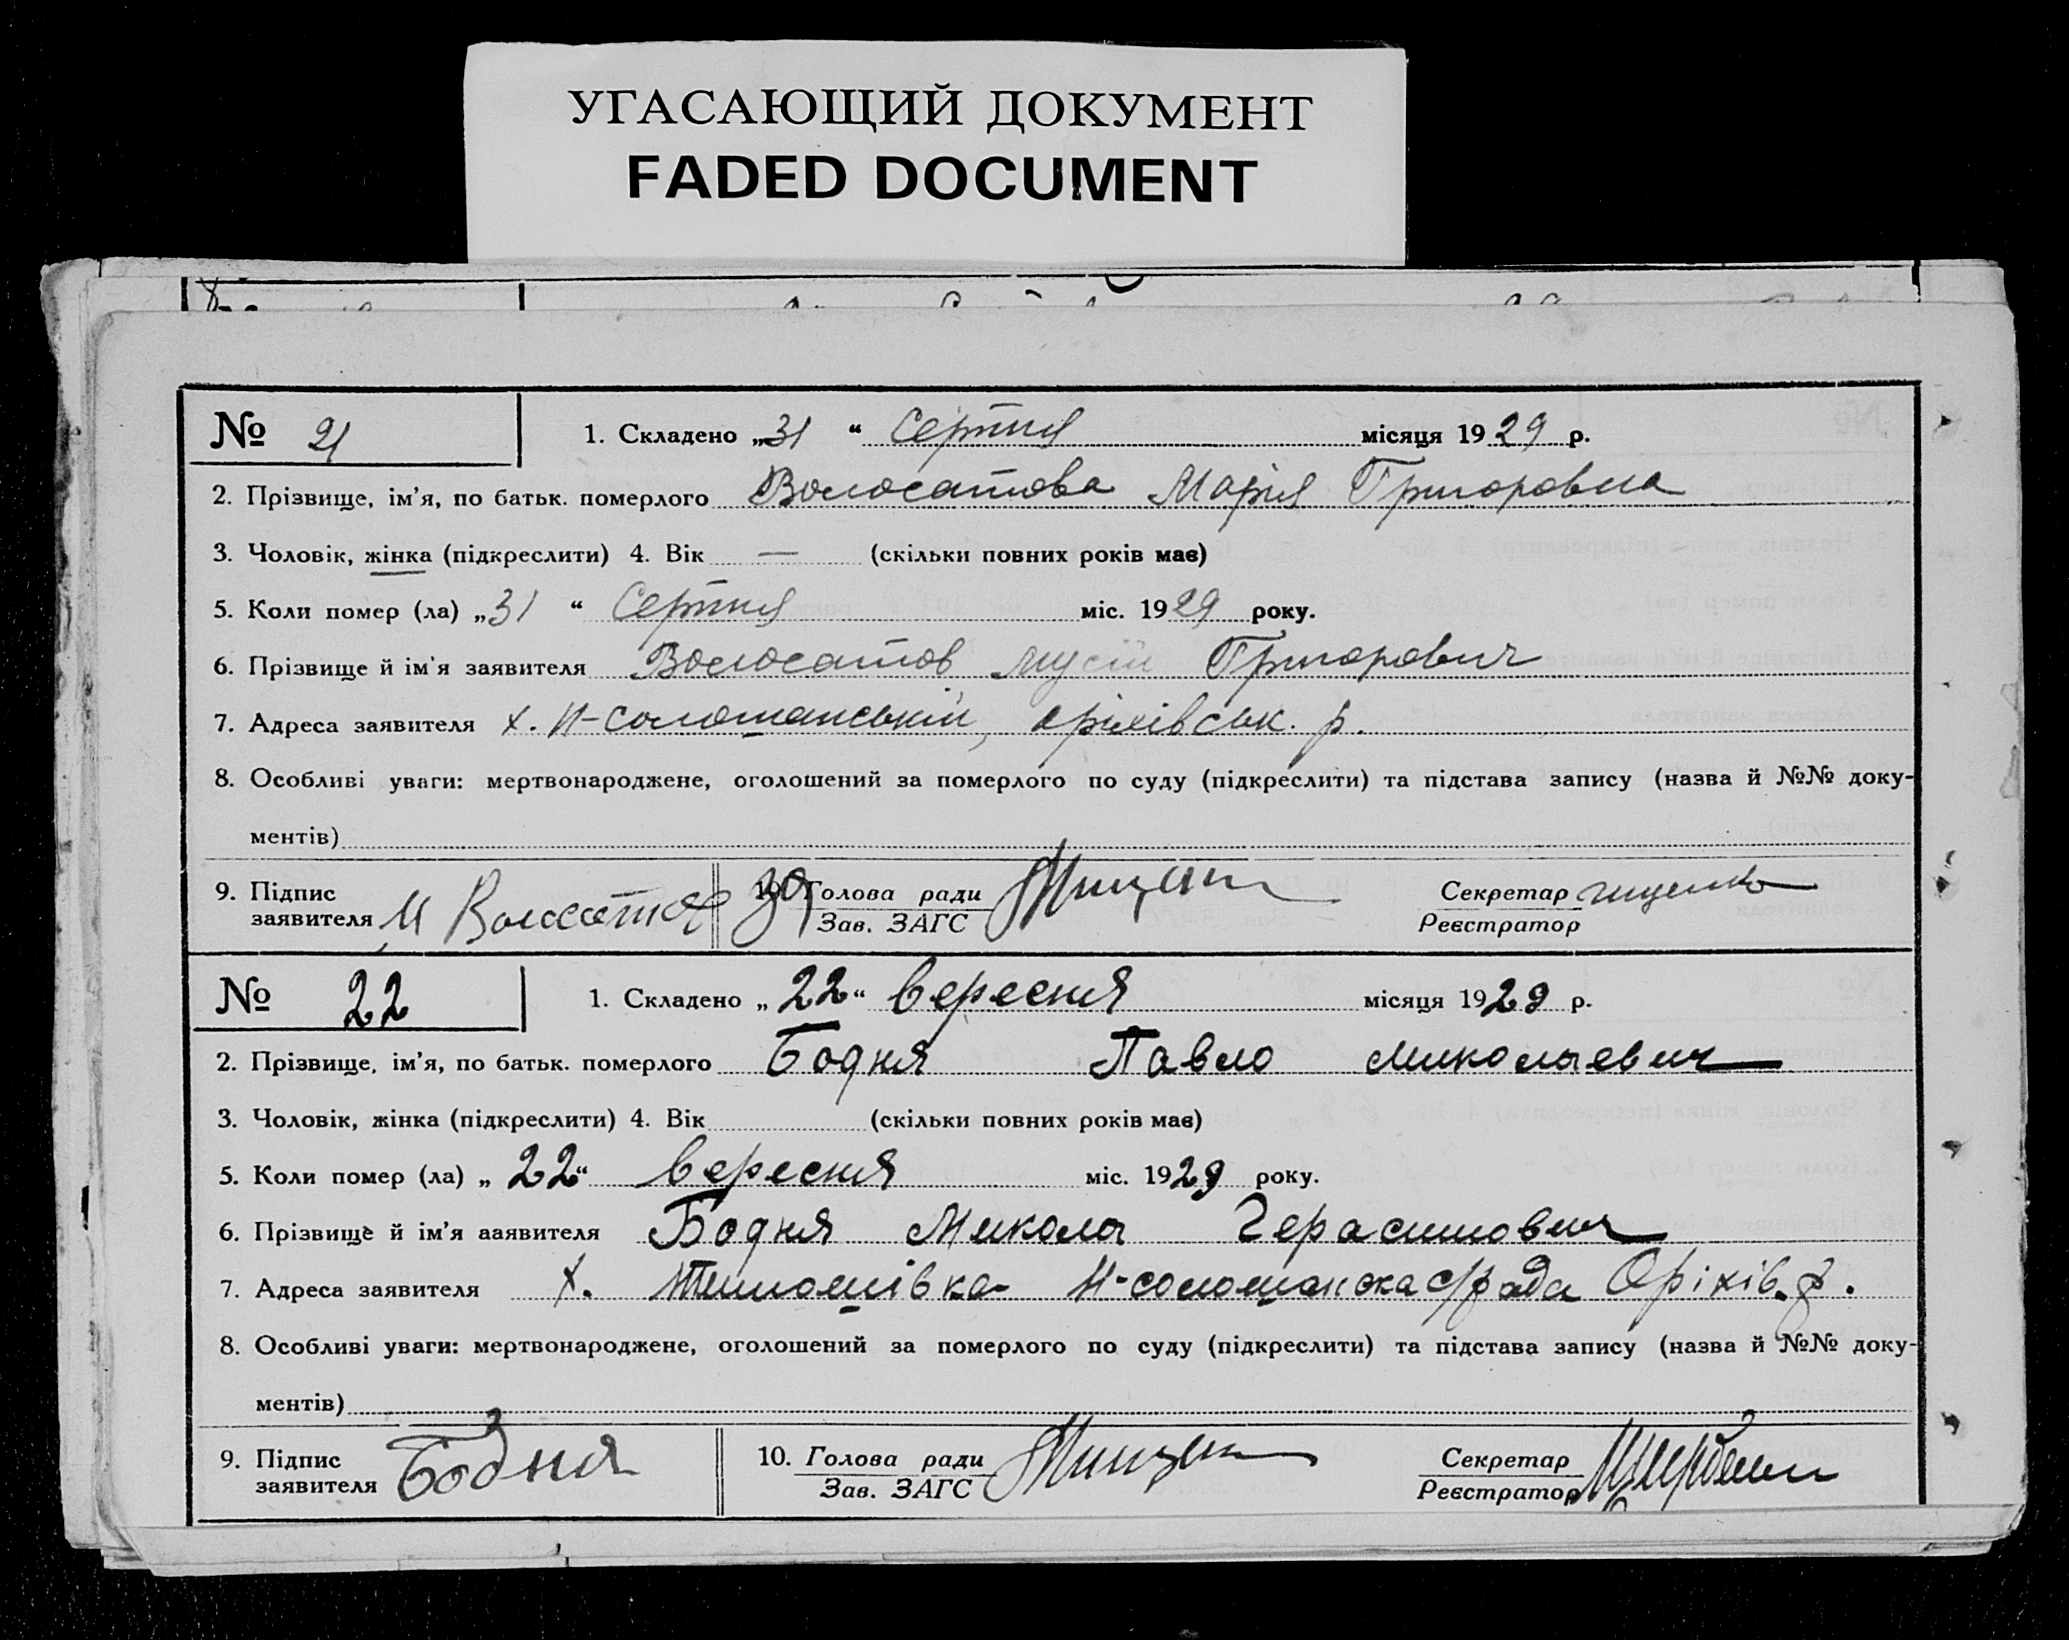 УГАСАЮЩИЙ ДОКУМЕНТ
FADED DOCUMENT
№ 21 1. Складено „31“ Серпня місяця 1929 р.
2. Прізвище, ім'я, по батьк. померлого Волосатова Марія Григоровна
3. Чоловік, жінка (підкреслити) 4. Вік — (скільки повних років має)
5. Коли помер (ла) „31“ Серпня міс. 1929 року.
6. Прізвище й ім'я заявителя Волосатов Мусій Григорович
7. Адреса заявителя х. Н-соломанський, оріхівськ. р.
8. Особливі уваги: мертвонароджене, оголошений за померлого по суду (підкреслити) та підстава запису (назва й №№ доку-
ментів)
9. Підпис 10. Голова ради Секретар
заявителя М Зав. ЗАГС Реєстратор
№ 22 1. Складено „22“ вересня місяця 1929 р.
2. Прізвище, ім'я, по батьк. померлого Бодня Павло Миколыевич
3. Чоловік, жінка (підкреслити) 4. Вік (скільки повних років має)
5. Коли помер (ла) „22“ вересня міс. 1929 року.
6. Прізвище й ім'я заявителя Бодня Миколы Герасимович
7. Адреса заявителя х. Тимошівка Н- с/рада Оріхів. р.
8. Особливі уваги: мертвонароджене, оголошений за померлого по суду (підкреслити) та підстава запису (назва й №№ доку-
ментів)
9. Підпис Бодня 10. Голова ради Секретар
заявителя Зав. ЗАГС Реєстратор